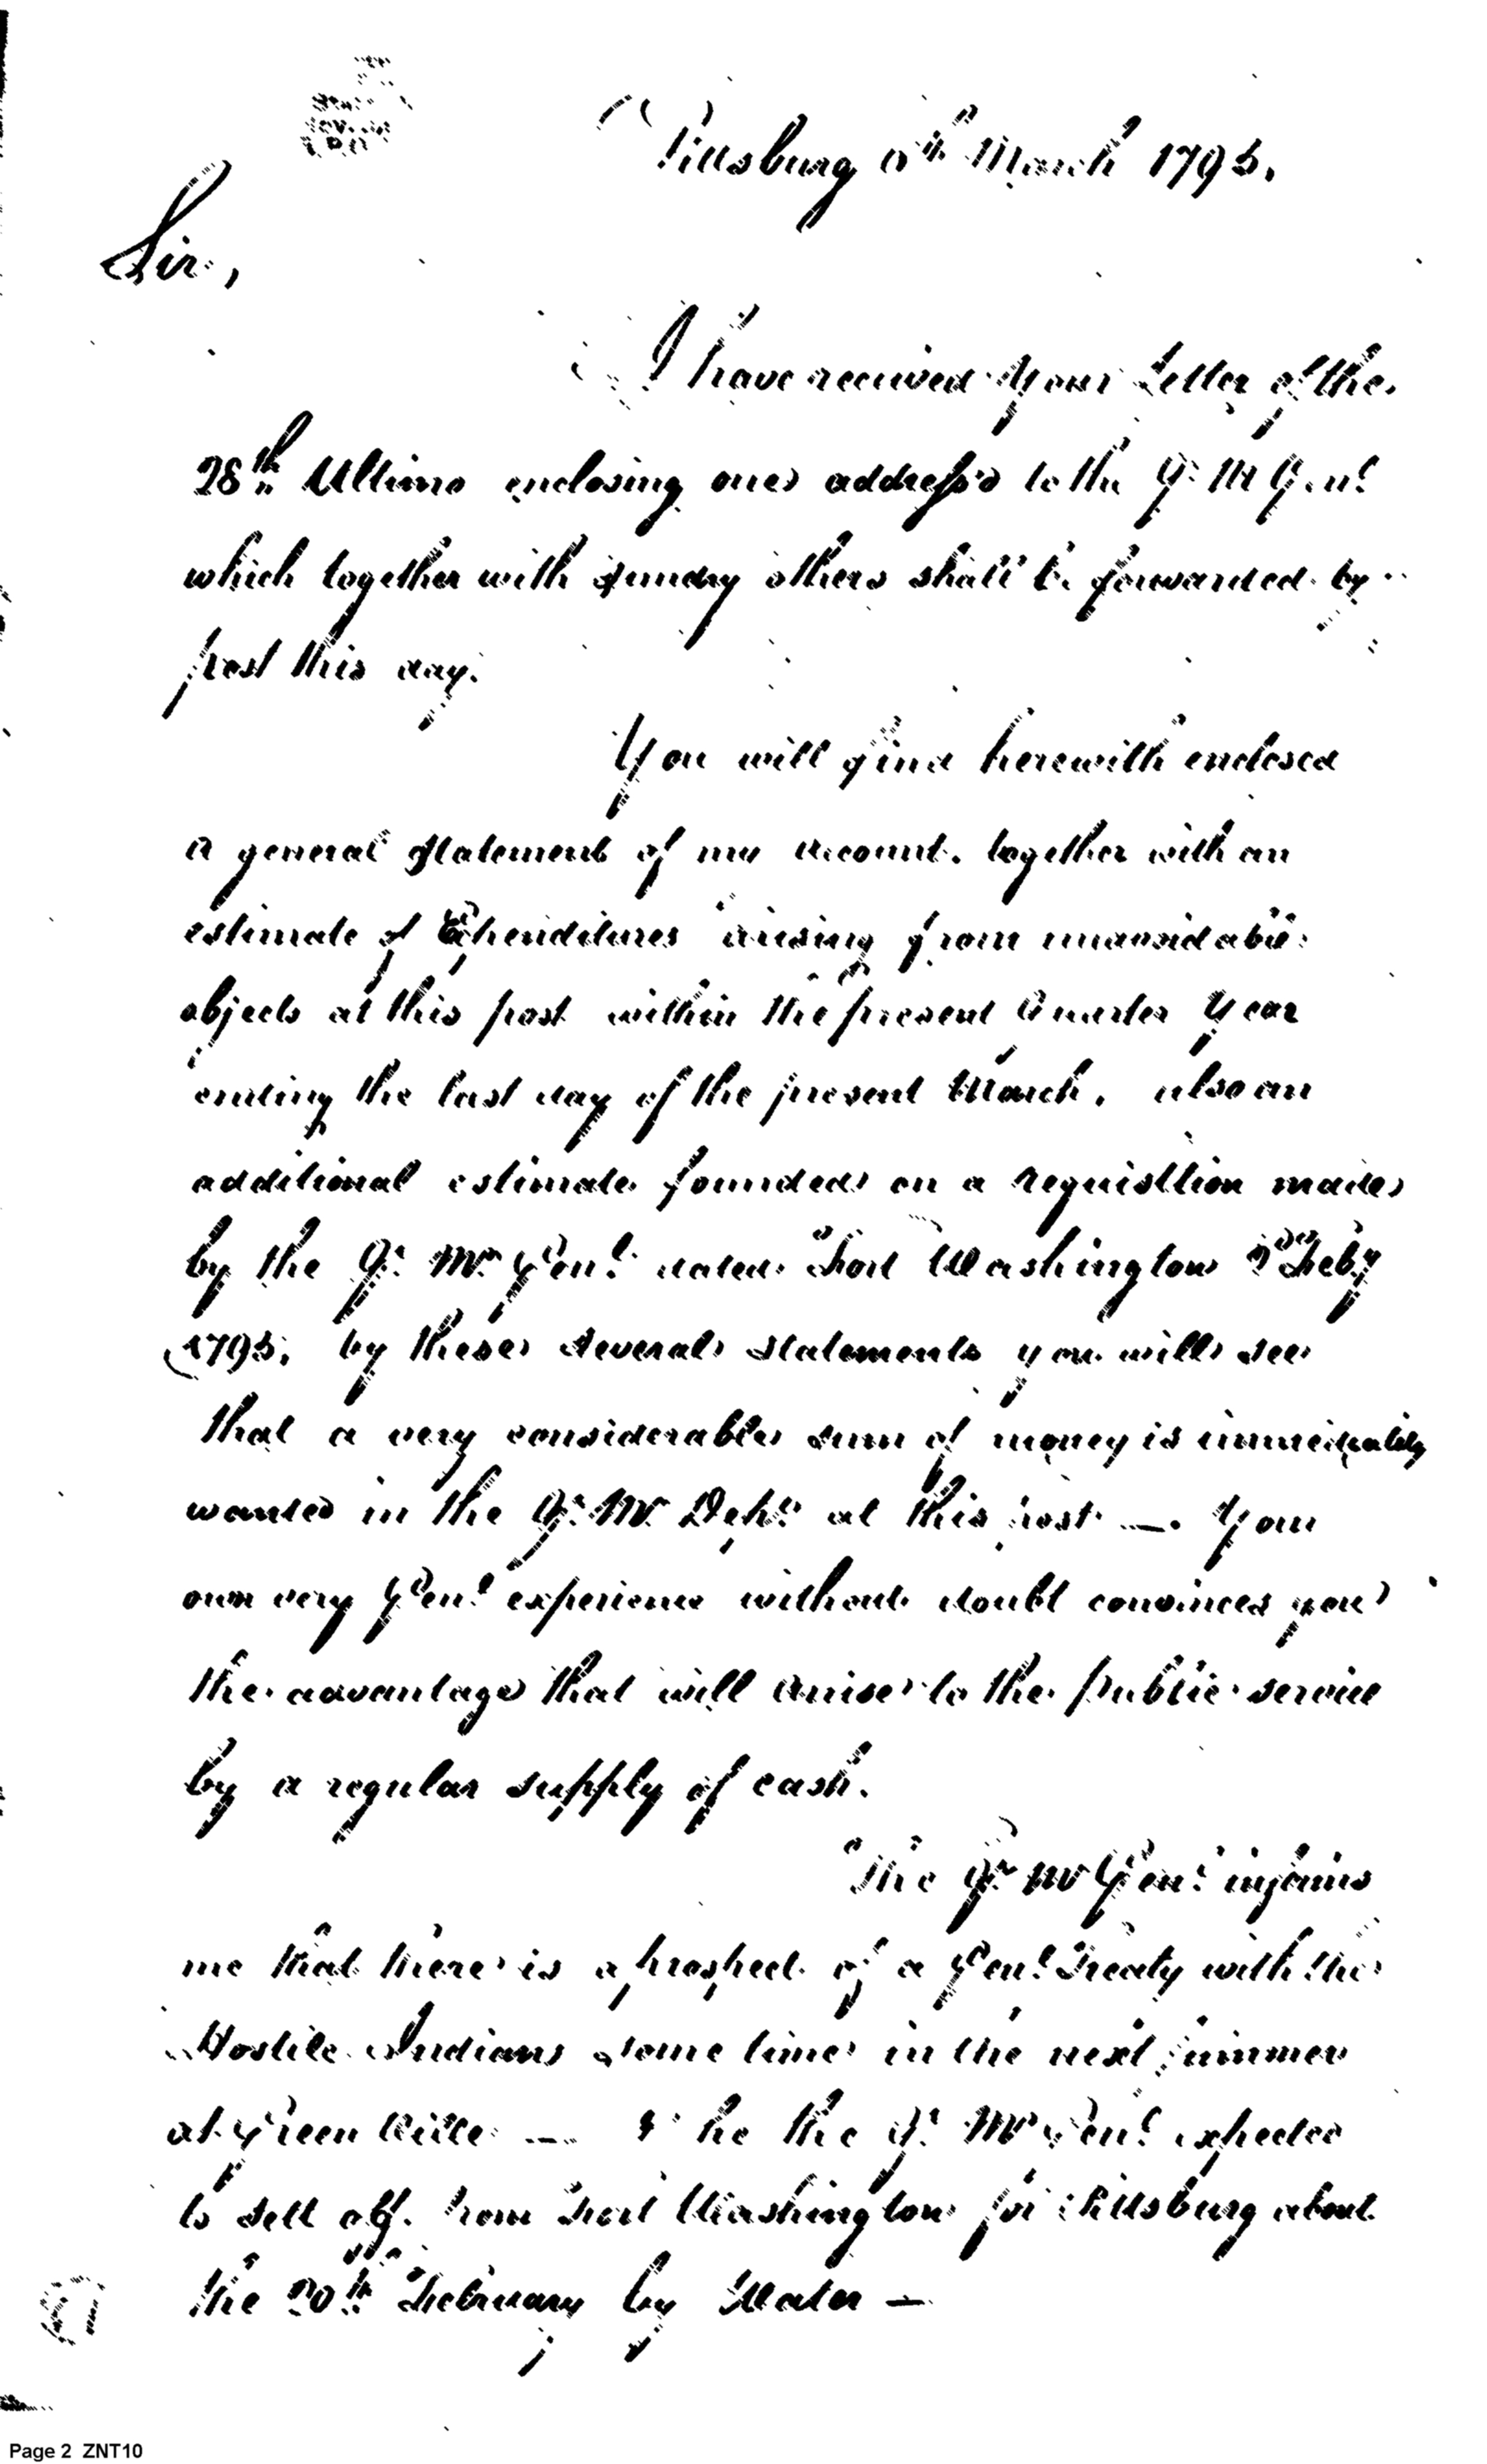 Pittsburg March 1795.
Sir,
I have received your Letter of the
28th Ultimo enclosing one address'd to the Q: M Genl
which together with sundry others shall be forwarded by
post this day.
You will find herewith enclosed
a general statement of my account. together with an
estimate of Expenditures arising from unavoidable
objects at this post within the present Quarter Year
ending the last day of the present March. also an
additional estimate founded on a requisition made
by the Qr Mr Genl dated Fort Washington Feby
1795. by these several statements you will see
that a very considerable sum of money is immediately
wanted in the Qr Mr Dept at this post —. Your
own very Genl experience without doubt convinces you
the advantage that will arise to the public service
by a regular supply of cash.
The Qr Mr Genl informs
me that there is a prospect of a Genl Treaty with the
Hostile Indians some time in the next summer
at Green Ville — & he the Qr Mr Genl expected
to sett off from Fort Washington for Pittsburg about
the 20th February by Water —
Page 2 ZNT10